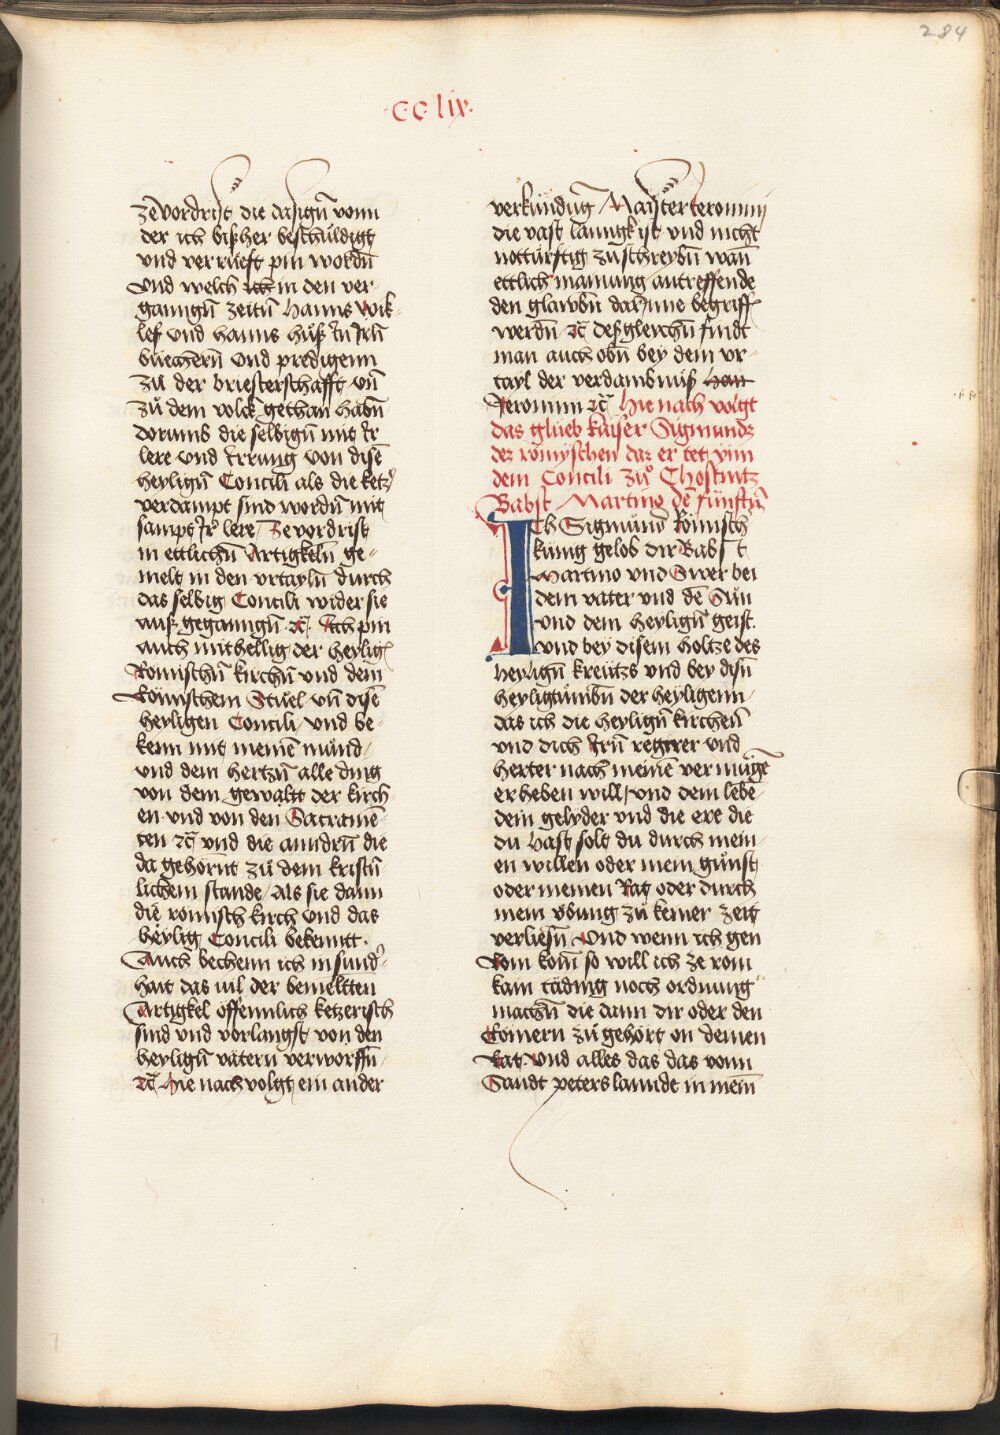 284
·CC lix·
zevordrist die dasigñ vonn
der ich bißher beschuldigt
und verrüeft pin wordñ
Und welch ich in den ver-
ganngñ zeitñ Hanns Wik-
lef und hanns huß in irñ
büechern Und predigenn
zu der briesterschafft vñ
zů dem volck gethan habñ
dorumb die selbigñ mit ir
lere und irrung von disē
heyligñ Concili als die ketzʼ
verdampt sind wordñ mit
sampt irʼ lere / Zevordrist
in ettlichñ Artigkelñ ge-
melt in den urtaylñ durch
das selbig Concili wider sie
auß gegangñ ꝛc̄ Ich pin
auch mithellig der heylig
Römischñ kirchñ und dem
Römischem Stuel vñ disē
heyligen Concili / und be-
kenn mit meinē mund /
und dem hertzñ alle ding
von dem gewaltt der kirch-
en und von den Sacramē-
ten ꝛc̄ und die anndrñ die
da gehörnt zů dem kristñ
lichem stande / Als sie dann
die römisch kirch und das
heylig Concili bekennt ·
Auch bechenn ich in sundʼ
hait das vil der bemeltten
Artigkel offennlich ketzerisch
sind und vorlangst von den
heyligñ vätern verworffñ
ꝛc̄ Hie nachvolgt ein ander
verkündug̃ Mayster Jeronimi
die vast lanngk ist und nicht
notturftig zuschreybñ wañ
ettlich mainung antreffende
den glawbñ darinne begriff
werdñ ꝛc̄ Deßgleichñ findt
man auch obñ bey dem ur-
tayl der verdambnüß han
Jeronimi ꝛc̄ Hie nach volgt
das glüeb kayser Sigmunds
der römyschen daz er tet ymm
dem Concili zů Chostnitz
Babst Martino dē fünftñ
Ich Sigmund Römisch
künig gelob dir Babst
Martino und Swer bei
dem vater und dē Sun
und dem heyligñ geist.
und bey disem holtze des
heyligñ kreutzs und bey disñ
heyligtumbñ der heyligenn
das ich die heyligñ kirchen
und dich irñ regirer und
herter nach meinē vermügē
erheben will / und dem lebē
dein gelyder und die ere die
du hast solt du durch mein-
en willen oder mein gunst
oder meinen Rat oder durch
mein übung zů keiner zeit
verliesñ Und wenn ich gen
Rom kom so will ich ze rom
kain täding noch ordnung
machñ die dann dir oder den
Römern zů gehört on deinen
Rat · Und alles das das vonn
Sandt peters lannde in mein